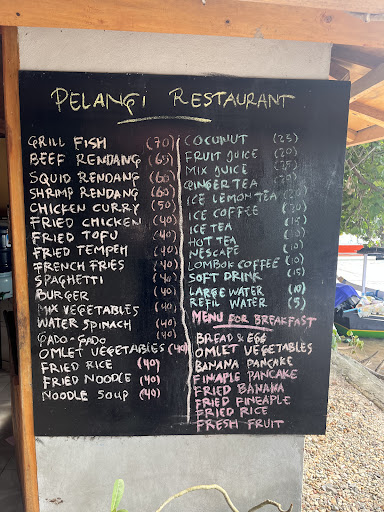 PELANGI RESTAURANT
GRILL FISH (70)
BEEF RENDANG (65)
SQUID RENDANG (60)
SHRIMP RENDANG (60)
CHICKEN CURRY (50)
FRIED CHICKEN (40)
FRIED TOFU (40)
FRIED TEMPEH (40)
FRENCH FRIES (40)
SPAGHETTI (40)
BURGER (40)
MIX VEGETABLES (40)
WATER SPINACH (40)
GADO-GADO
OMLET VEGETABLES (40)
FRIED RICE (40)
FRIED NOODLE (40)
NOODLE SOUP (40)
COCUNUT (25)
FRUIT JUICE (20)
MIX JUICE (25)
GINGER TEA
ICE LEMON TEA (20)
ICE COFFEE (20)
ICE TEA (15)
HOT TEA (10)
NESCAPE (10)
LOMBOK COFFEE (10)
SOFT DRINK (15)
LARGE WATER (10)
REFIL WATER (5)
MENU FOR BREAKFAST
BREAD & EGG
OMLET VEGETABLES
BANANA PANCAKE
FINAPLE PANCAKE
FRIED BANANA
FRIED FINEAPLE
FRIED RICE
FRESH FRUIT